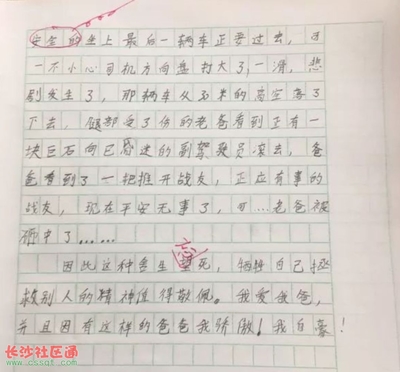 安全的坐上最后一辆车正要过去,
一不小心司机方向盘打大了,一滑,悲
剧发生了,那辆车从30米的高空落了
下去,腿部受了份的老爸看到正有一
块巨石向已昏迷的副驾驶员滚去,爸
爸看到了一把推开战友,正应有事的
战友,现在平安无事了,可…老爸被
砸中了……
忘
因此这种舍生望死,牺牲自己拯
救别人的精神值得敬佩。我爱我爸,
并且因有这样的爸爸我骄傲!我自豪!
长沙社区通
www.cssqt.com